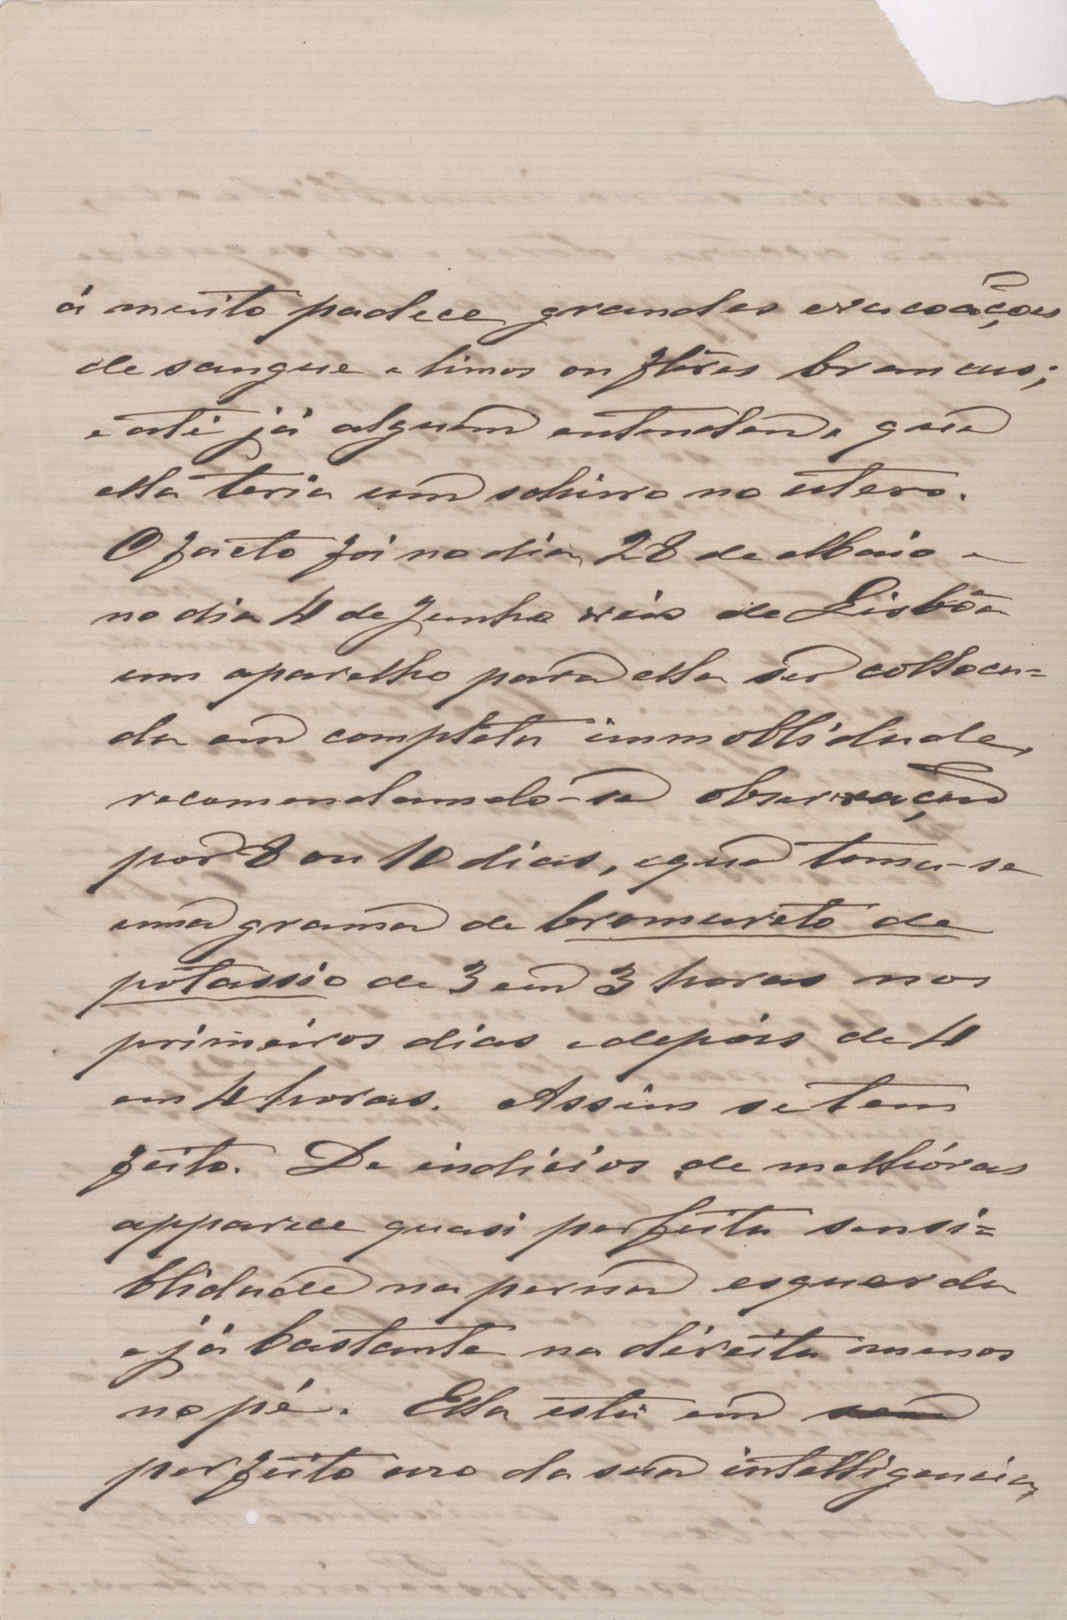 á muito padece grandes evacoações
de sangue e limos ou flôres brancas;
e até já alguem entendeu que
ella teria um schirro no utero.
O facto foi no dia 28 de Maio e
no dia 4 de Junho veio de Lisbôa
um aparelho para ella ser colloca=
da em completa immoblidade,
recomendando-se observação
por 8 ou 10 dias, e que toma-se
uma grama de bromureto de
potassio de 3 em 3 horas nos
primeiros dias e depois de 4
em 4 horas. Assim se tem
feito. De indicios de melhóras
apparece quasi perfeita sensi=
blidade na perna esquerda
e já bastante na direita menos
no pé. Ella está em
perfeito uso da sua intelligencia,